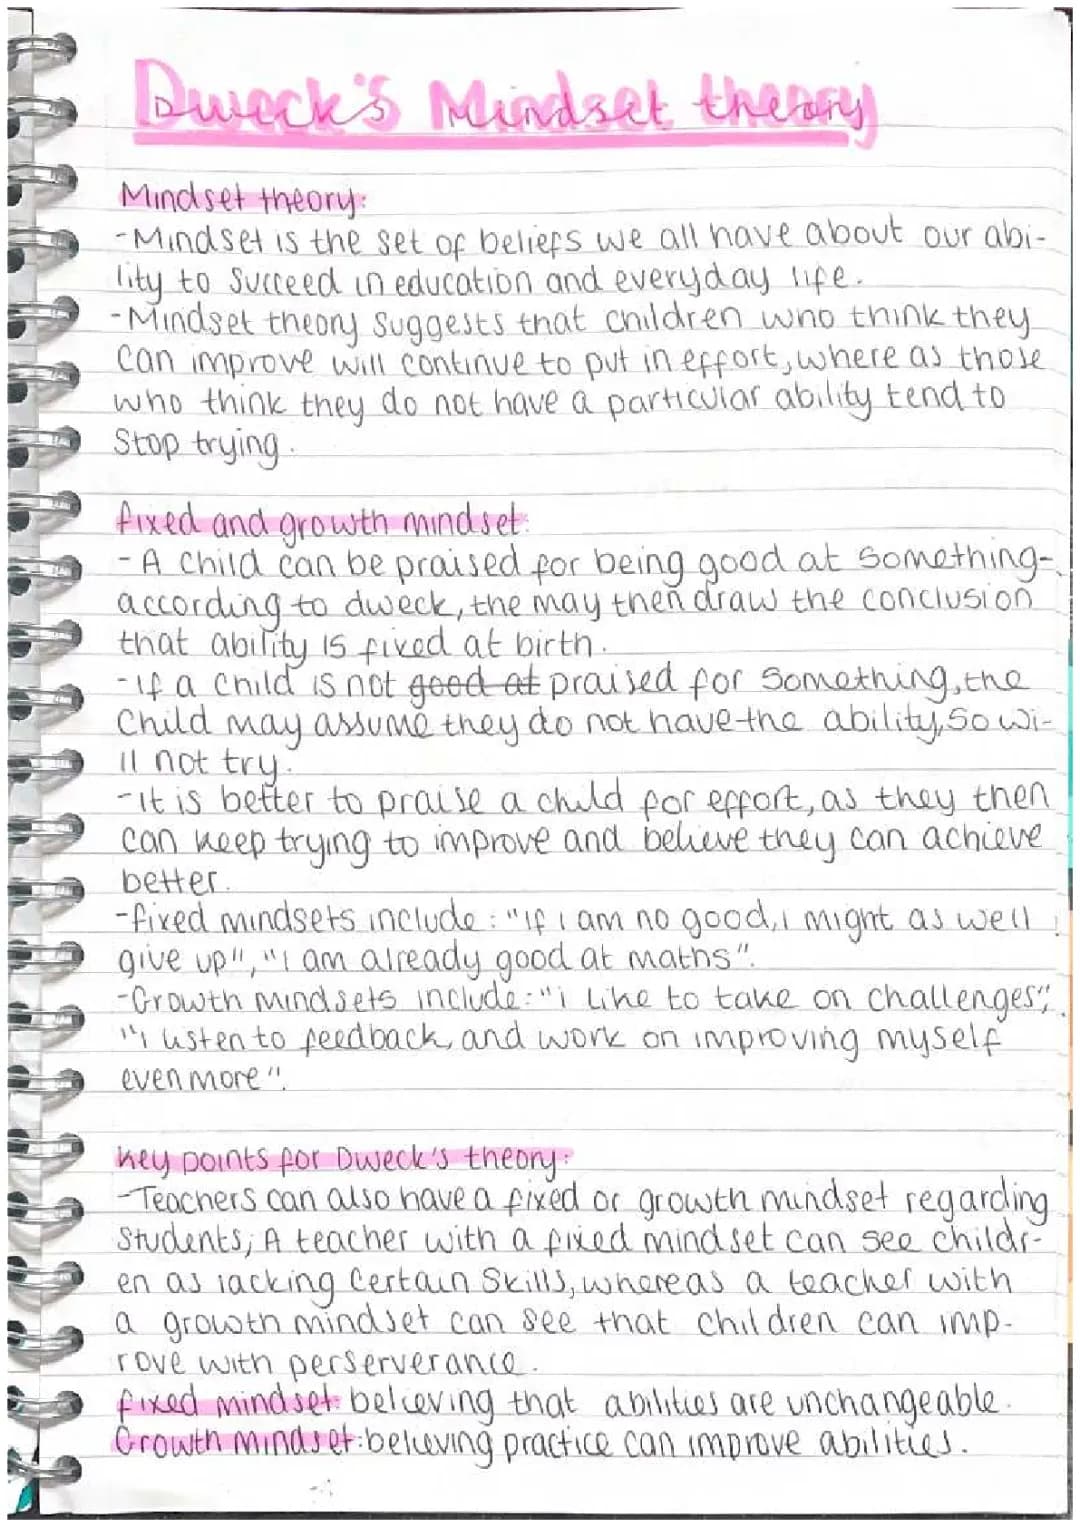 Dweck's Mindset theory
Mindset theory:
-Mindset is the set of beliefs we all have about our abi-
lity to succeed in education and everyday life.
-Mindset theory suggests that children who think they
can improve will continue to put in effort, where as those
who think they do not have a particular ability tend to
Stop trying.
fixed and growth mindset:
- A child can be praised for being good at something-
according to dweck, the may then draw the conclusion
that ability is fixed at birth.
-If a child is not good at praised for something, the
child may assume they do not have the ability, so wi-
ll not try.
-It is better to praise a child for effort, as they then
can keep trying to improve and believe they can achieve
better.
-fixed mindsets include: "If i am no good, i might as well
give up", "I am already good at maths".
-Growth mindsets include: "i like to take on challenges",
"i listen to feedback, and work on improving myself
even more".
Key points for Dweck's theory:
-Teachers can also have a fixed or growth mindset regarding
students; A teacher with a fixed mindset can see childr-
en as lacking certain skills, whereas a teacher with
a growth mindset can see that children can imp-
rove with perserverance.
fixed mindset: believing that abilities are unchangeable.
Growth mindset: believing practice can improve abilities.